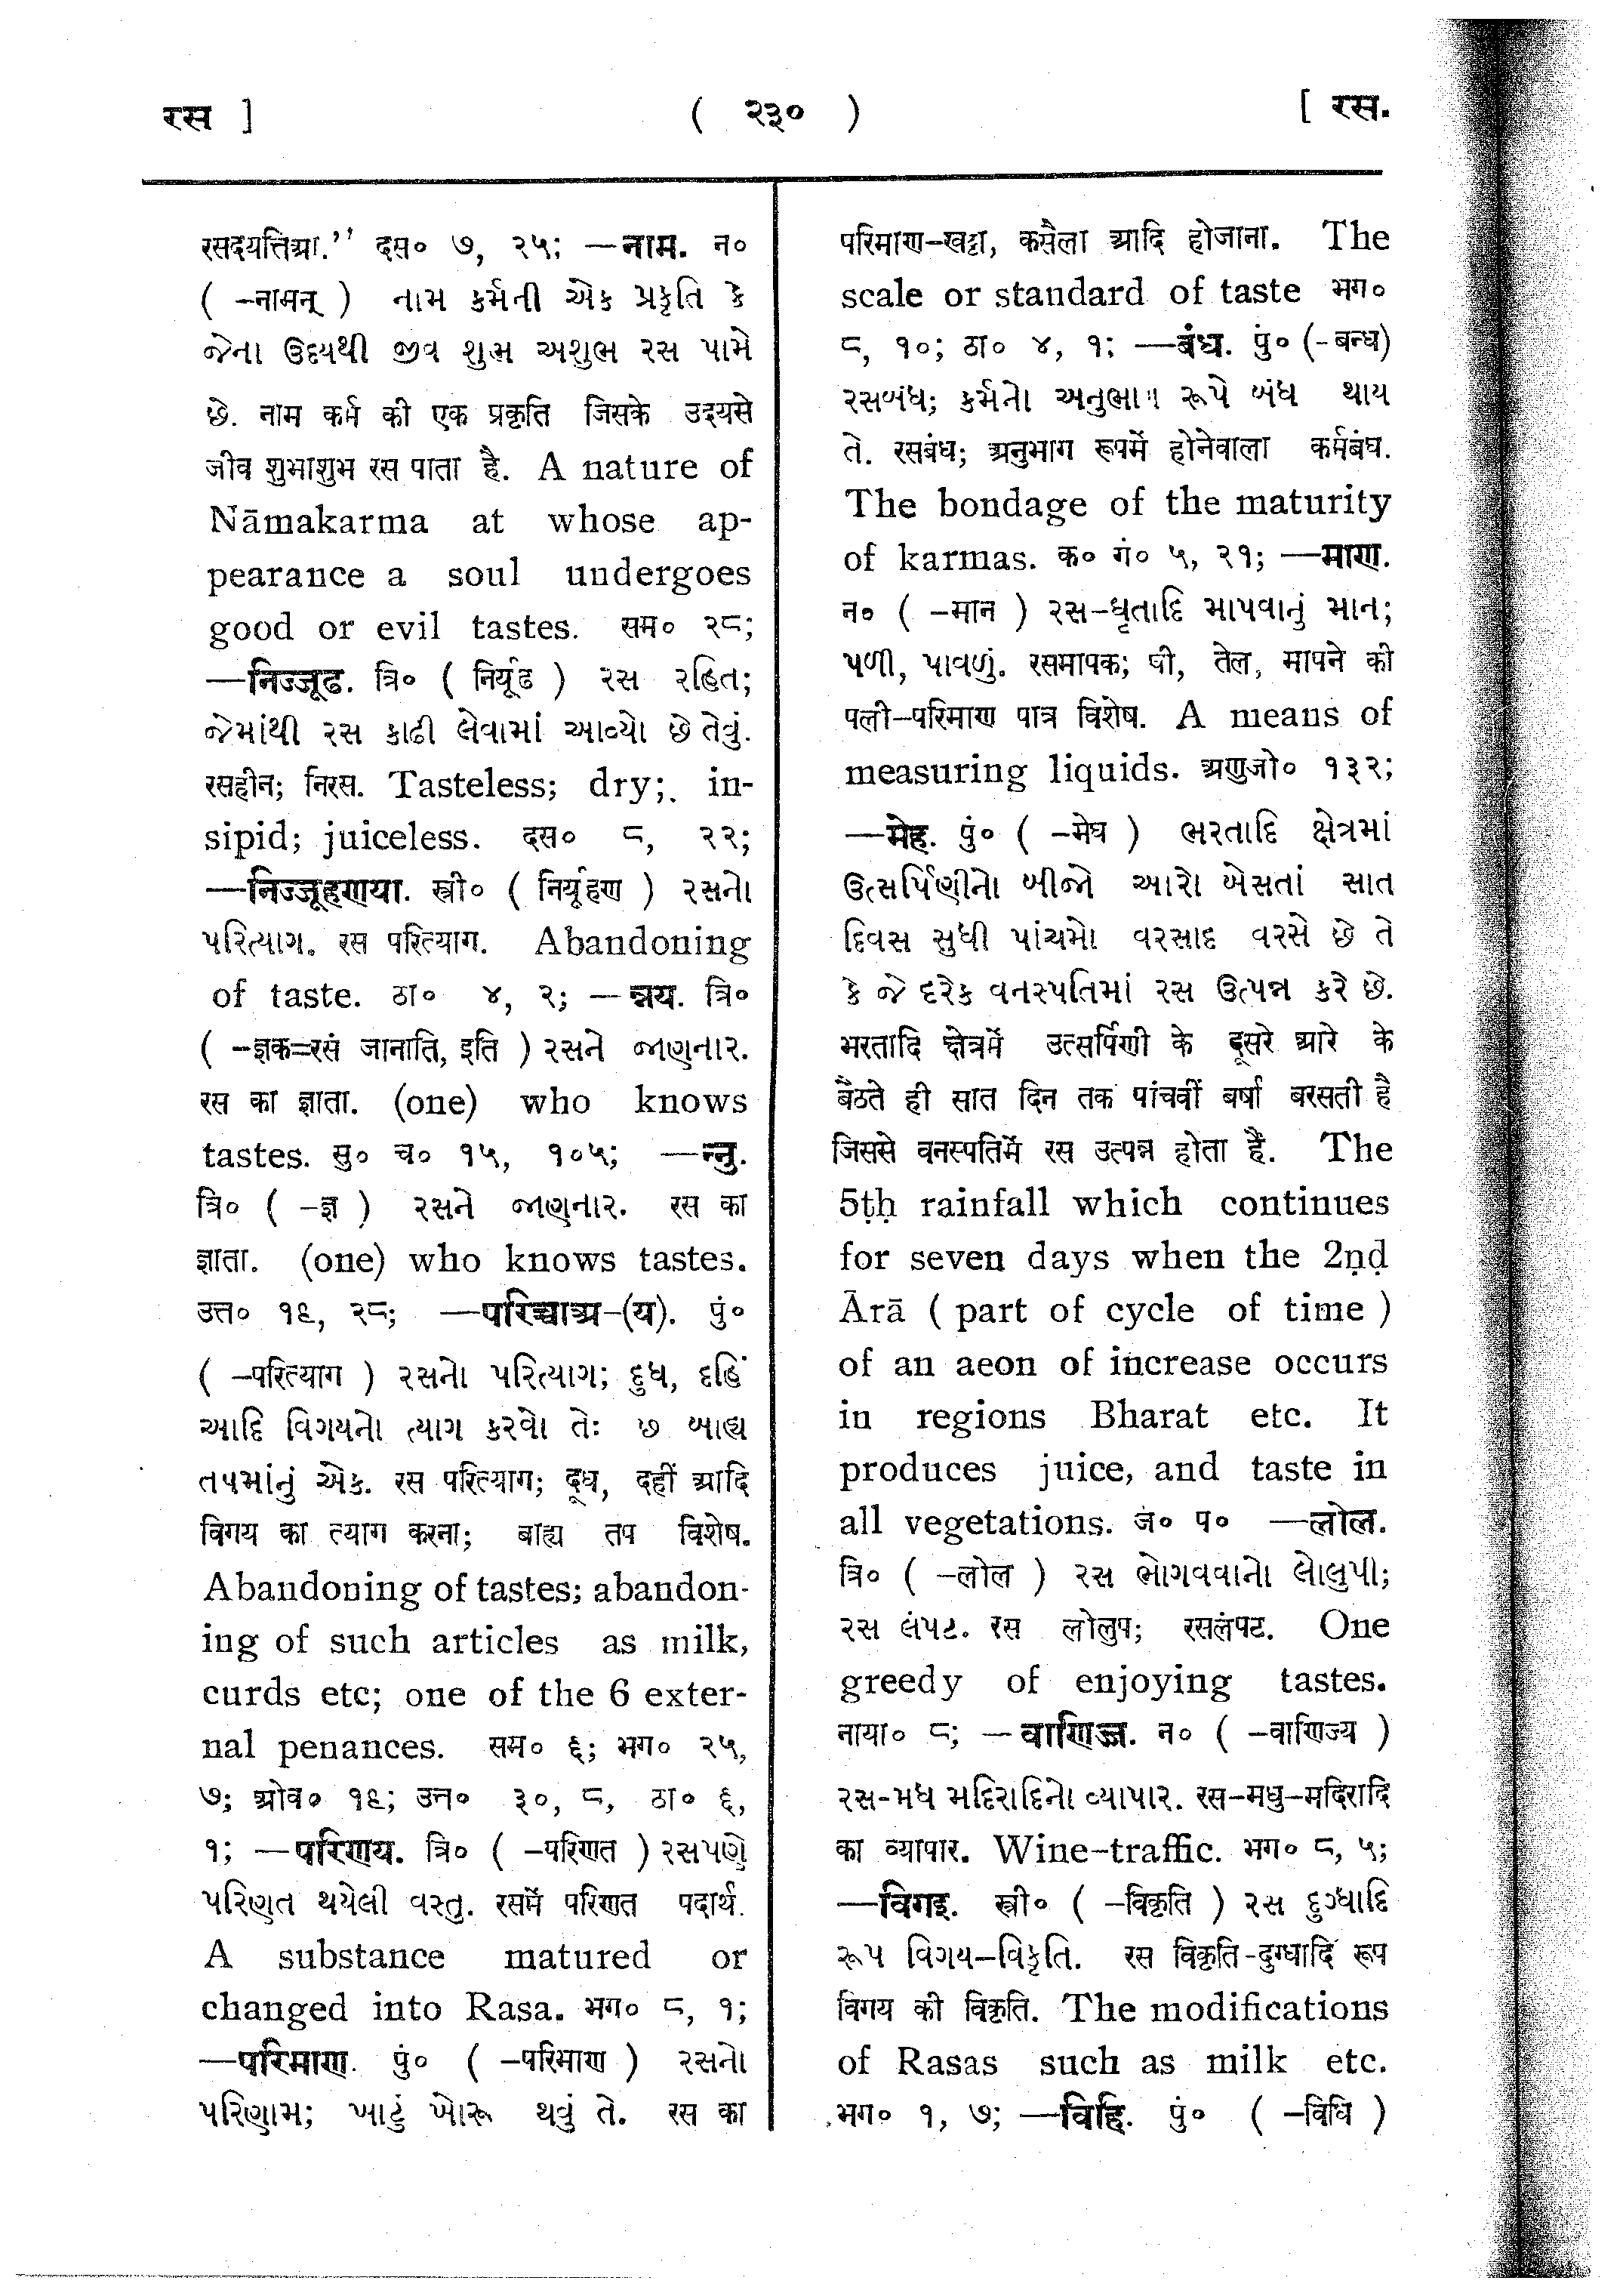 रस ]
( २३० )
[ रस.
रसदयत्तिआ.'' दस० ७, २५; —नाम. न०
( -नामन् ) નામ કર્મની એક પ્રકૃતિ કે
જેના ઉદયથી જીવ શુભ અશુભ રસ પામે
છે. नाम कर्म की एक प्रकृति जिसके उदयसे
जीव शुभाशुभ रस पाता है. A nature of
Nāmakarma at whose ap-
pearance a soul undergoes
good or evil tastes. सम० २८;
—निज्जूढ. त्रि० ( निर्यूढ ) રસ રહિત;
જેમાંથી રસ કાઢી લેવામાં આવ્યો છે તેવું.
रसहीन; निरस. Tasteless; dry; in-
sipid; juiceless. दस० ८, २२;
—निज्जूहणया. स्त्री० ( निर्यूहण ) રસનો
પરિત્યાગ. रस परित्याग. Abandoning
of taste. ठा० ४, २; —न्नय. त्रि०
( -ज्ञक=रसं जानाति, इति ) રસને જાણનાર.
रस का ज्ञाता. (one) who knows
tastes. सु० च० १५, १०५; —न्नु.
त्रि० ( -ज्ञ ) રસને જાણનાર. रस का
ज्ञाता. (one) who knows tastes.
उत्त० १९, २८; —परिच्चाअ-(य). पुं०
( -परित्याग ) રસનો પરિત્યાગ; દુધ, દહિં
આદિ વિગયનો ત્યાગ કરવો તે: છ બાહ્ય
તપમાંનું એક. रस परित्याग; दूध, दहीं आदि
विगय का त्याग करना; बाह्य तप विशेष.
Abandoning of tastes; abandon-
ing of such articles as milk,
curds etc; one of the 6 exter-
nal penances. सम० ६; भग० २५,
७; ओव० १९; उत्त० ३०, ८, ठा० ६,
१; —परिणय. त्रि० ( -परिणत ) રસપણે
પરિણત થયેલી વસ્તુ. रसमें परिणत पदार्थ.
A substance matured or
changed into Rasa. भग० ८, १;
—परिमाण. पुं० ( -परिमाण ) રસનો
પરિણામ; ખાટું ખોરૂ થવું તે. रस का
परिमाण-खट्टा, कसैला आदि होजाना. The
scale or standard of taste भग०
८, १०; ठा० ४, १; —बंध. पुं० (-बन्ध)
રસબંધ; કર્મનો અનુભાગ રૂપે બંધ થાય
તે. रसबंध; अनुभाग रूपमें होनेवाला कर्मबंध.
The bondage of the maturity
of karmas. क० गं० ५, २१; —माण.
न० ( -मान ) રસ-ધૃતાદિ માપવાનું માન;
પળી, પાવળું. रसमापक; घी, तेल, मापने की
पली-परिमाण पात्र विशेष. A means of
measuring liquids. अणुजो० १३२;
—मेह. पुं० ( -मेघ ) ભરતાદિ ક્ષેત્રમાં
ઉત્સર્પિણીનો બીજો આરો બેસતાં સાત
દિવસ સુધી પાંચમો વરસાદ વરસે છે તે
કે જે દરેક વનસ્પતિમાં રસ ઉત્પન્ન કરે છે.
भरतादि क्षेत्रमें उत्सर्पिणी के दूसरे आरे के
बैठते ही सात दिन तक पांचवीं बर्षा बरसती है
जिससे वनस्पतिमें रस उत्पन्न होता हैं. The
5ṭḥ rainfall which continues
for seven days when the 2ṇḍ
Ārā ( part of cycle of time )
of an aeon of increase occurs
in regions Bharat etc. It
produces juice, and taste in
all vegetations. जं० प० —लोल.
त्रि० ( -लोल ) રસ ભોગવવાનો લોલુપી;
રસ લંપટ. रस लोलुप; रसलंपट. One
greedy of enjoying tastes.
नाया० ८; —वाणिज्ज. न० ( -वाणिज्य )
રસ-મધ મદિરાદિનો વ્યાપાર. रस-मधु-मदिरादि
का व्यापार. Wine-traffic. भग० ८, ५;
—विगइ. स्त्री० ( -विकृति ) રસ દુગ્ધાદિ
રૂપ વિગય-વિકૃતિ. रस विकृति-दुग्धादि रूप
विगय की विकृति. The modifications
of Rasas such as milk etc.
भग० १, ७; —विहि. पुं० ( -विधि )